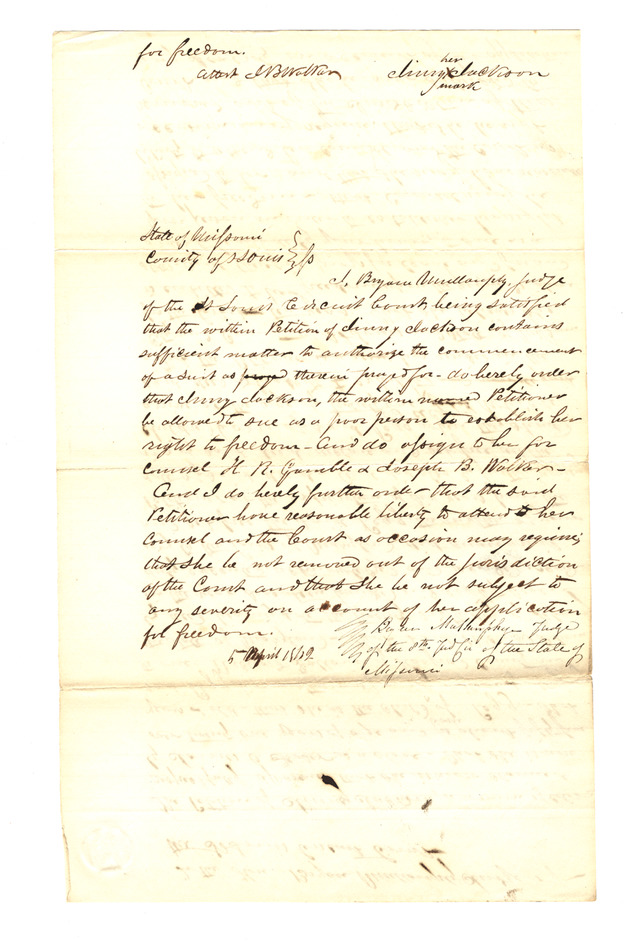 for freedom.
Attest J B Walker Jinny her Jackson
mark
State of Missouri
County of St Louis } ss
I, Bryan Mullanphy Judge
of the St Louis Circuit Court, being satisfied
that the within Petition of Jinny Jackson contains
sufficient matter to authorize the commencement
of a suit as prayed therein prayed for - do hereby order
that Jinny Jackson, the within named Petitioner
be allowed to sue as a poor person to establish her
right to freedom - And do assign to her for
counsel H R. Gamble & Joseph B. Walker -
And I do hereby further order that the said
Petitioner have reasonable liberty to attend to her
Counsel and the Court as occasion may require;
that she be not removed out of the jurisdiction
of the Court and that she be not subject to
any severity on account of her application
for freedom.
Bryan Mullanphy Judge
5 April 1842 of the 8th Jud Cir of the State of
Missouri